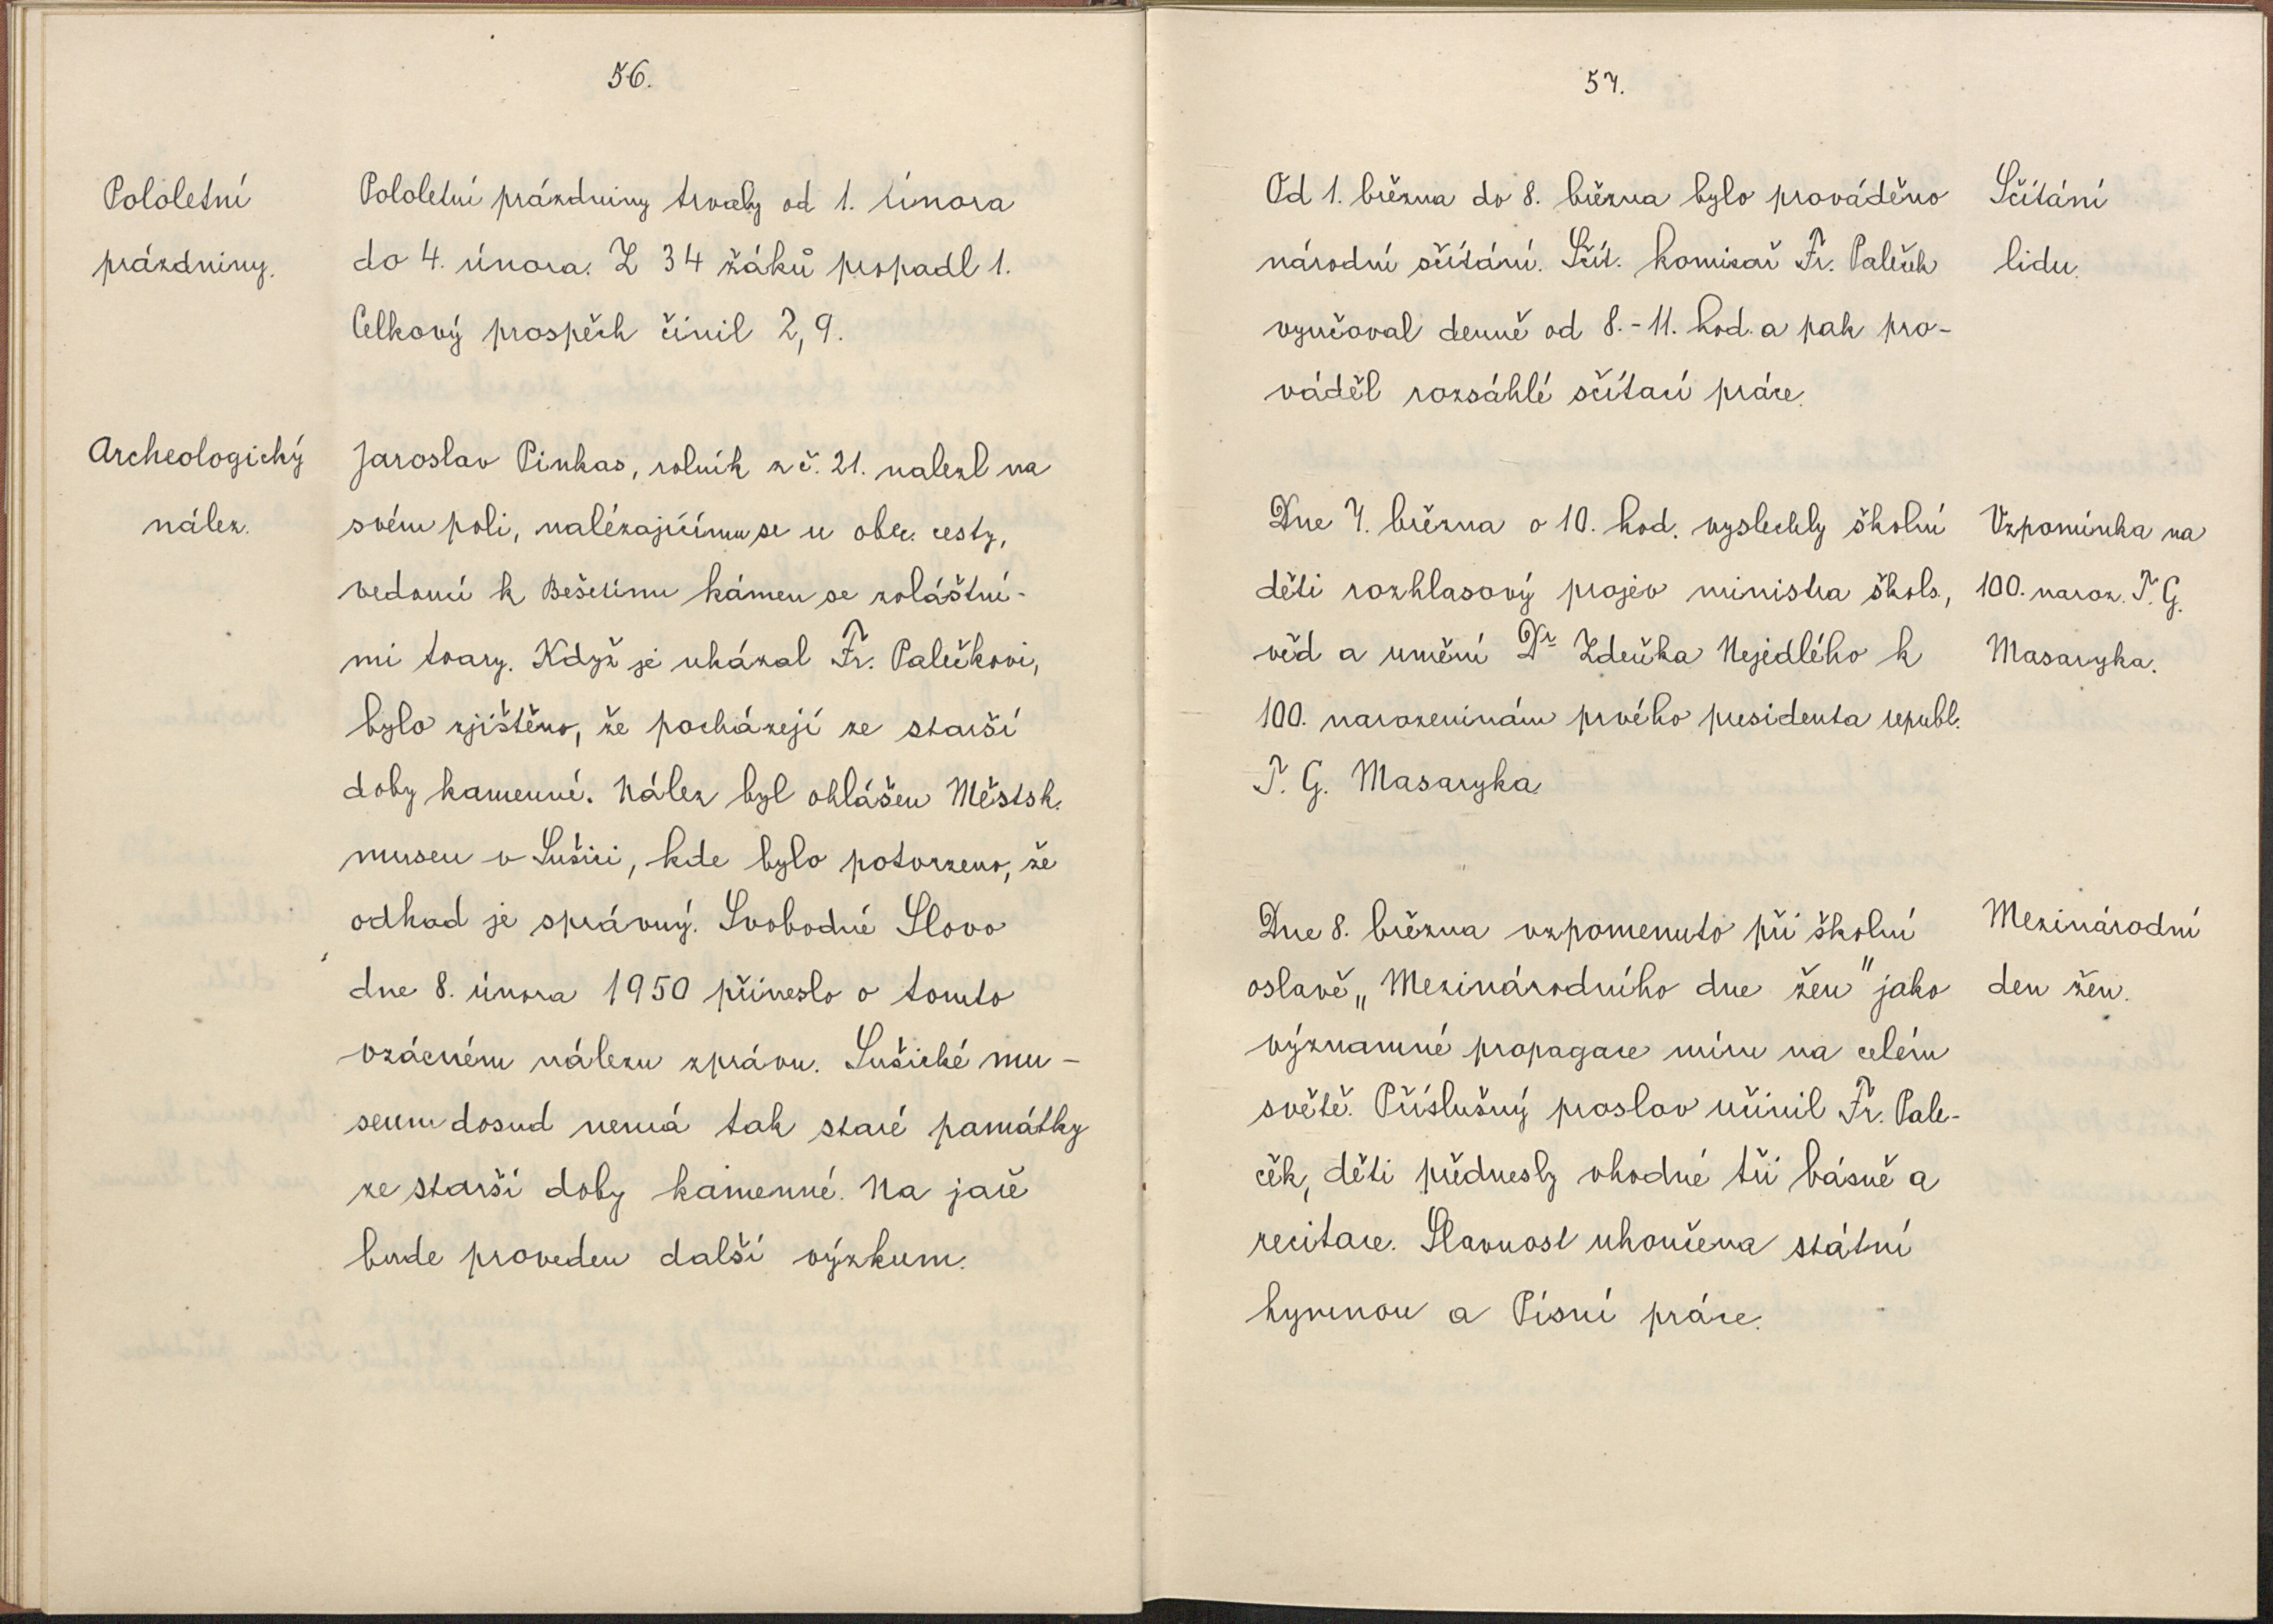 56.
Pololetní
prázdniny.
Pololetní prázdniny trvaly od 1. února
do 4. února. Z 34 žáků propadl 1.
Celkový prospěch činil 2,9.
Archeologický
nález.
Jaroslav Pinkas, rolník z č. 21. nalezl na
svém poli, nalézajícímu se u obec. cesty,
vedoucí k Bešetínu kámen se zvláštní-
mi tvary. Když je ukázal Fr. Palečkovi,
bylo zjištěno, že pocházejí ze starší
doby kamenné. Nález byl ohlášen Městsk.
museu v Sušici, kde bylo potvrzeno, že
odhad je správný. Svobodné Slovo
dne 8. února 1950 přineslo o tomto
vzácném nálezu zprávu. Sušické mu-
seum dosud nemá tak staré památky
ze starší doby kamenné. Na jaře
bude proveden další výzkum.
57.
Od 1. března do 8. března bylo prováděno
národní sčítání. Sčít. komisař Fr. Paleček
vyučoval denně od 8.-11. hod. a pak pro-
váděl rozsáhlé sčítací práce.
Sčítání
lidu.
Dne 7. března o 10. hod. vyslechly školní
děti rozhlasový projev ministra škols.,
věd a umění Dr Zdeňka Nejedlého k
100. narozeninám prvého presidenta republ.
T. G. Masaryka.
Vzpomínka na
100. naroz. T. G.
Masaryka.
Dne 8. března vzpomenuto při školní
oslavě „Mezinárodního dne žen" jako
významné propagace míru na celém
světě. Příslušný proslov učinil Fr. Pale-
ček, děti přednesly vhodné tři básně a
recitace. Slavnost ukončena státní
hymnou a Písní práce.
Mezinárodní
den žen.